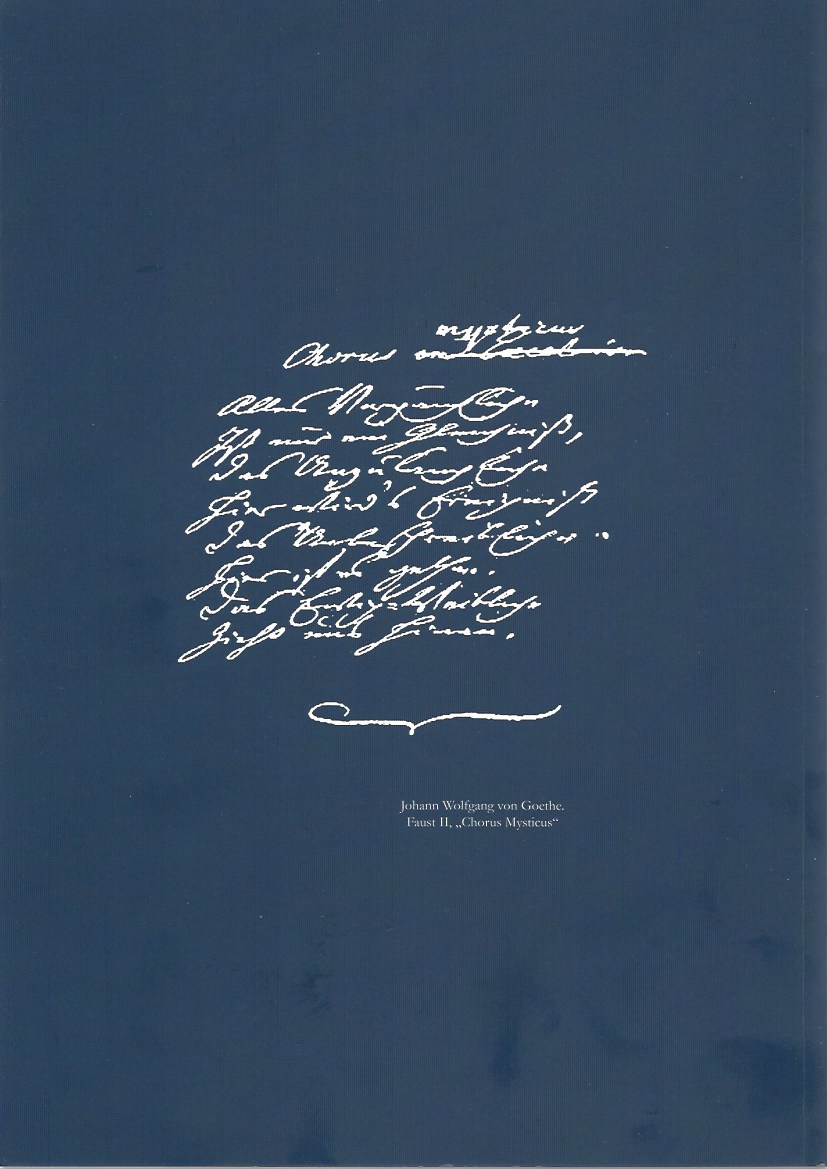 mysticus
Chorus
Alles Vergängliche
Ist nur ein Gleichniß,
Das Unzulängliche
Hier wird's Ereigniß
Das Unbeschreibliche.
Hier ist es gethan.
Das Ewig-Weibliche
Zieht uns hinan.
Johann Wolfgang von Goethe.
Faust II, „Chorus Mysticus“